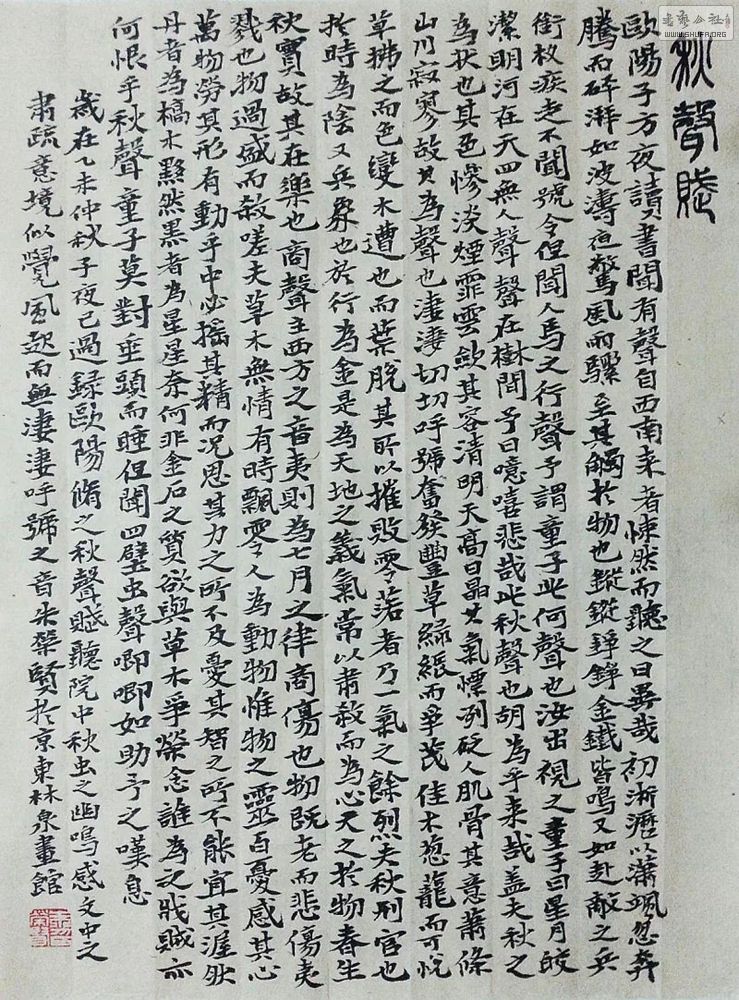 書藝公社
WWW.SHUFA.ORG
秋聲賦
歐陽子方夜讀書聞有聲自西南来者悚然而聽之曰異哉初淅瀝以瀟颯忽奔
騰而砰湃如波濤夜驚風雨驟至其觸於物也鏦鏦錚錚金鐵皆鳴又如赴敵之兵
銜枚疾走不聞號令但聞人馬之行聲予謂童子此何聲也汝出視之童子曰星月皎
潔明河在天四無人聲聲在樹間予曰噫嘻悲哉此秋聲也胡為乎来哉盖夫秋之
為狀也其色慘淡煙霏雲歛其容清明天高日晶其氣慄冽砭人肌骨其意蕭條
山川寂寥故其為聲也淒淒切切呼號奮發豐草緑縟而爭茂佳木葱蘢而可悅
草拂之而色變木遭也而葉脫其所以摧敗零落者乃一氣之餘烈夫秋刑官也
於時為陰又兵象也於行為金是為天地之義氣常以肅殺而為心天之於物春生
秋實故其在樂也商聲主西方之音夷則為七月之律商傷也物既老而悲傷夷
戮也物過盛而殺嗟夫草木無情有時飄零人為動物惟物之靈百憂感其心
萬物勞其形有動乎中必搖其精而况思其力之所不及憂其智之所不能宜其渥然
丹者為槁木黟然黑者為星星奈何非金石之質欲與草木爭榮念誰為之戕賊亦
何恨乎秋聲童子莫對垂頭而睡但聞四壁虫聲唧唧如助予之嘆息
歲在乙未仲秋子夜已過録歐陽脩之秋聲賦聽院中秋虫之幽鳴感文中之
肅疏意境似覺風起而無淒淒呼號之音朱榮賢於京東林泉畫館